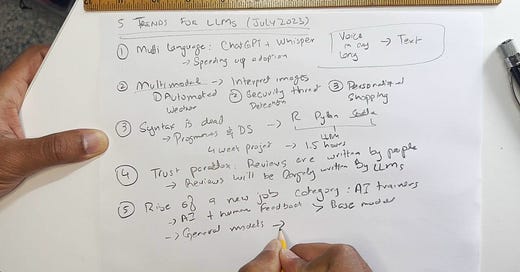 5 TRENDS FOR LLMs (JULY 2023)
① Multi Language: ChatGPT + Whisper
→ Speeding up adoption
Voice in any lang → Text
② Multimodal → Interpret images
① Automated
② Security threat Detection
③ Personalized Shopping
③ Syntax is dead
→ Programmers & DS → R Python Stata
LLMs
4 week project → 1.5 hours
④ Trust paradox: Reviews are written by people
→ Reviews will be largely written by LLMs
⑤ Rise of a new job category: AI trainers
→ AI + human feedback > Base model
→ General models →